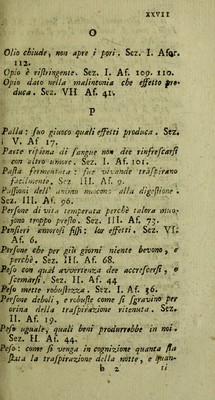 XXVII
O
Olio chiude, non apre i pori. Sez. I. Afor.
112.
Opio è ristringente. Sez. I. Af. 109. 110.
Opio dato nella malintonia che effetto pro-
duca. Sez. VII Af. 41.
P
Palla: suo giuoco quali effetti produca. Sez.
V. Af 17.
Parte ripiena di sangue non dee rinfrescarsi
con altro umore. Sez. I. Af. 101.
Pasta fermentata: fue vivande traspirano
facilmente. Sez III. Af. 9.
Passioni dell' animo nuocono alla digestione.
Sez. III. Af. 96.
Persone di vita temperata perchè talora muo-
jono troppo presto. Sez. III. Af. 73.
Pensieri amorosi fissi: lor effetti. Sez. VI.
Af. 6.
Persone che per più giorni niente bevono, e
perchè. Sez. III. Af. 68.
Peso con qual avvertenza dee accrescersi, o
scemarsi. Sez. II. Af. 44
Peso mette robustezza. Sez. I. Af. 36.
Persone deboli, e robuste come si sgravino per
orina della traspirazione ritenuta. Sez.
II. Af. 19.
Peso uguale, quali beni produrrebbe in noi.
Sez. II. Af. 44.
Peso: come si venga in cognizione quanta sia
stata la traspirazione della notte, e quan-
b 2 ti